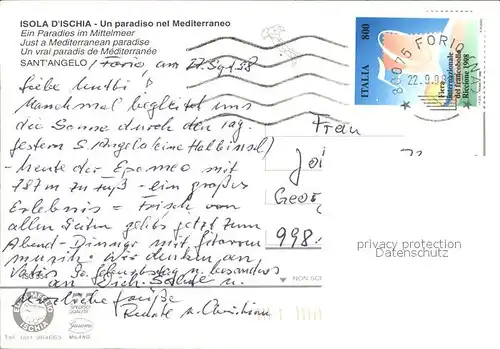 ISOLA D'ISCHIA - Un paradiso nel Mediterraneo
Ein Paradies im Mittelmeer
Just a Mediterranean paradise
Un vrai paradis de Méditerranée
SANT'ANGELO / Forio am 22. Sept 98
Liebe Mutti!
Manchmal begleitet uns
die Sonne durch den Tag,
gestern S. Angelo (eine Halbinsel)
- heute der Epomeo mit
787 m zu Fuß - ein großes
Erlebnis = Frisch von
allen Seiten gehts jetzt zum
Abend-Dinner mit Gitarren
musik. Wir denken an
Vatis Geburtstag u. besonders
an Dich. Liebe u.
herzliche Grüße
Renate u. Christian
ITALIA
800
Fiera
internazionale
del francobollo
Riccione 1998
80075 FORIO
22.9.98
Frau
Geor
998
NON SC
privacy protection
Datenschutz
ISCHIA
MILANO
Tel. 081 984663